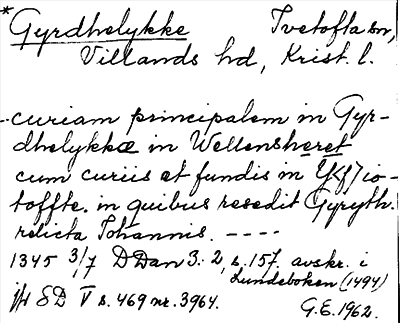 * Gyrdhelykke Tvetofta sn,
Villands hd, Krist. l.
-curiam principalem in Gyr-
dhelykkæ in Wellensheret
cum curiis et fundis in Y(g)io-
toffte. in quibus resedit Gyryth.
relicta Johannis. ----
1345 3/7 DDan 3:2, s. 157. avskr. i
Lundeboken (1494)
jfr SD V s. 469 nr. 3964.
G.E. 1962.